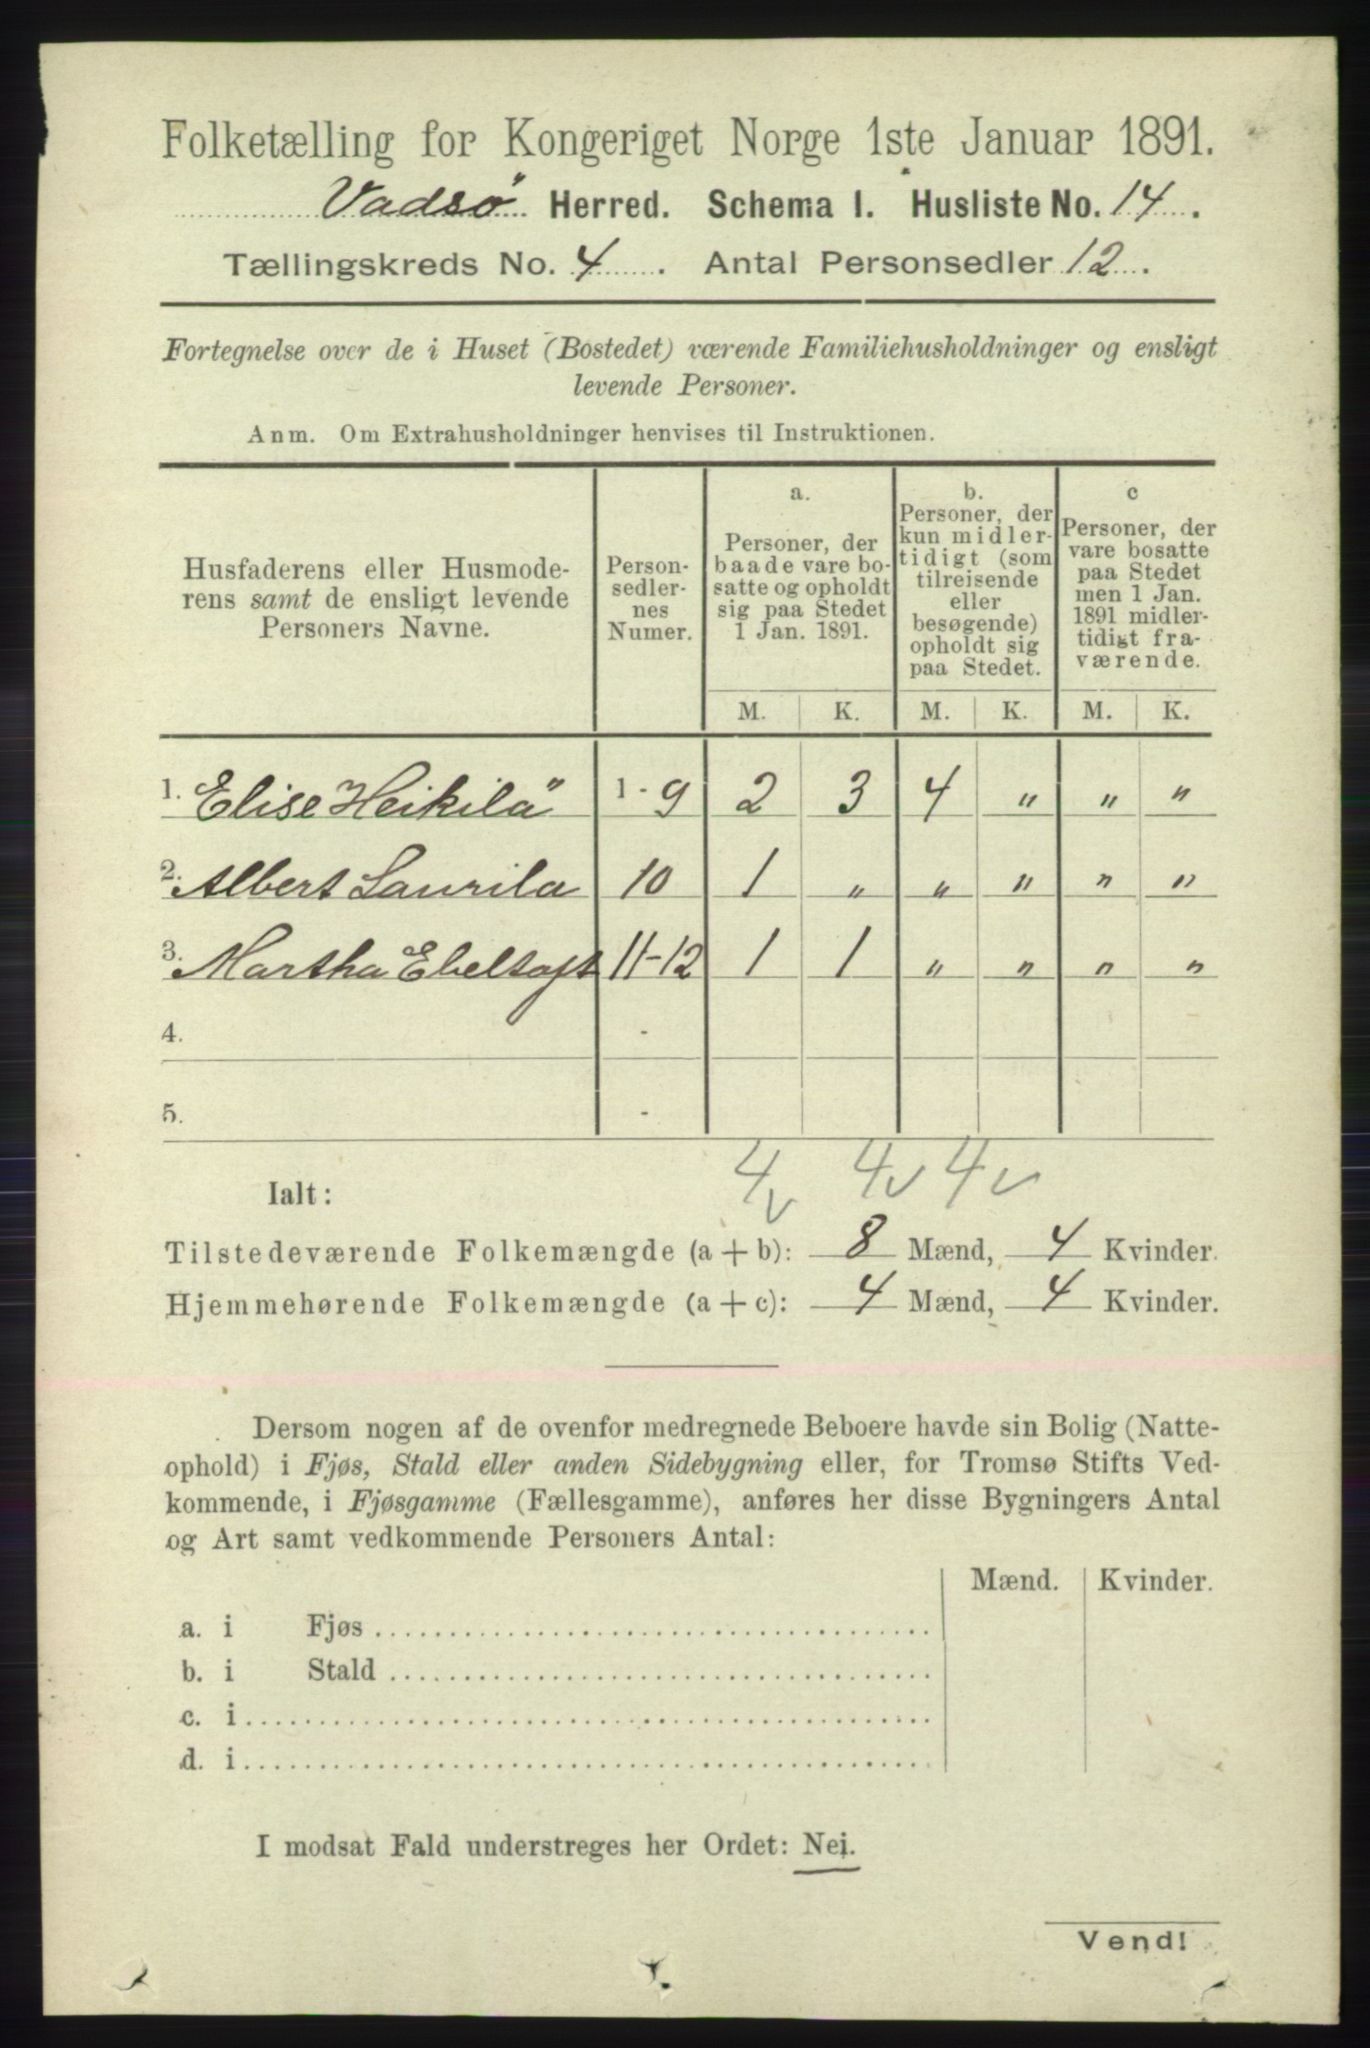 Folketælling for Kongeriget Norge 1ste Januar 1891.
Vadsö Herred. Schema I. Husliste No. 14.
Tællingskreds No. 4. Antal Personsedler 12.
Fortegnelse over de i Huset (Bostedet) værende Familiehusholdninger og ensligt
levende Personer.
Anm. Om Extrahusholdninger henvises til Instruktionen.
Husfaderens eller Husmode-
rens samt de ensligt levende
Personers Navne.
Person-
sedler-
nes
Numer.
a.
Personer, der
baade vare bo-
satte og opholdt
sig paa Stedet
1 Jan. 1891.
b.
Personer, der
kun midler-
tidigt (som
tilreisende
eller
besøgende)
opholdt sig
paa Stedet.
c
Personer, der
vare bosatte
paa Stedet
men 1 Jan.
1891 midler-
tidigt fra-
værende.
M. K. M. K. M. K.
1. Elise Heikilä 1-9 2 3 4 " " "
2. Albert Laurila 10 1 " " " " "
3. Martha Ebeltoft 11-12 1 1 " " " "
4. -
5. -
4 v 4 v 4 v
Ialt:
Tilstedeværende Folkemængde (a + b): 8 Mænd, 4 Kvinder.
Hjemmehørende Folkemængde (a + c): 4 Mænd, 4 Kvinder.
Dersom nogen af de ovenfor medregnede Beboere havde sin Bolig (Natte-
ophold) i Fjøs, Stald eller anden Sidebygning eller, for Tromsø Stifts Ved-
kommende, i Fjøsgamme (Fællesgamme), anføres her disse Bygningers Antal
og Art samt vedkommende Personers Antal:
Mænd. Kvinder.
a. i Fjøs
b. i Stald
c. i
d. i
I modsat Fald understreges her Ordet: Nei.
Vend!